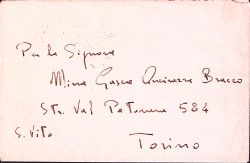 Per la Signora
Mina Gasca Bracco
Str. Val Patonera 584
S. Vito
Torino